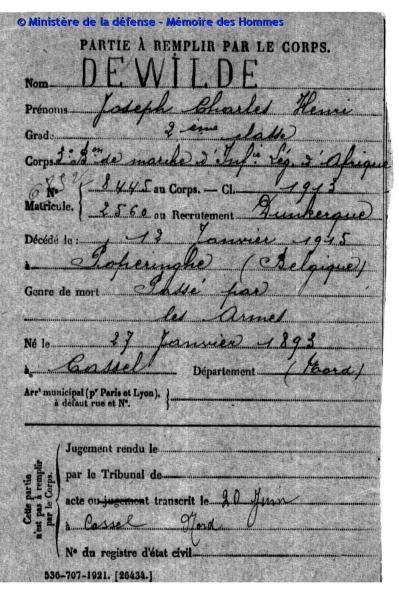 © Ministère de la défense - Mémoire des Hommes
PARTIE À REMPLIR PAR LE CORPS.
Nom DEWILDE
Prénoms Joseph Charles Henri
Grade 2ème classe
Corps 3e Bon de marche d'Infie Lég. d'Afrique
No 8445 au Corps. — Cl. 1913
Matricule. 2560 au Recrutement Dunkerque
Décédé le : 12 Janvier 1915
à Poperinghe (Belgique)
Genre de mort Passé par
les Armes
Né le 27 Janvier 1893
à Cassel Département (Nord)
Arrt municipal (pr Paris et Lyon),
à défaut rue et No.
Cette partie
n'est pas à remplir
par le Corps.
Jugement rendu le
par le Tribunal de
acte ou jugement transcrit le 20 Juin
à Cassel Nord
No du registre d'état civil
536-707-1921. [26434.]